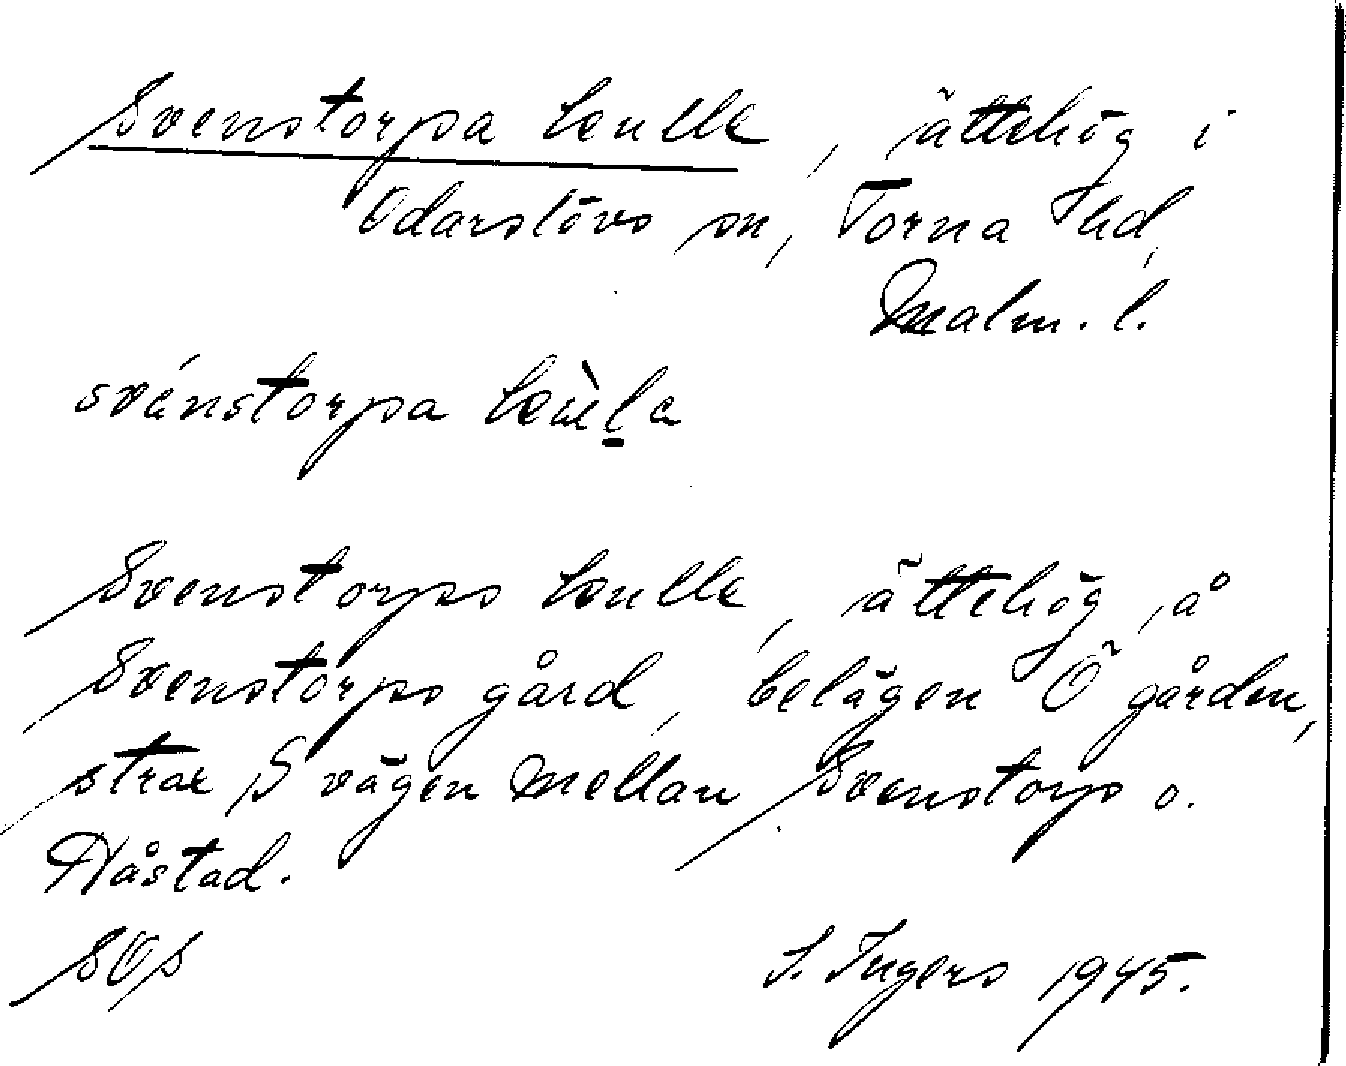 Svenstorpa kulle, ättehög i
Odarslövs sn, Torna hd,
Malm. l.
svénstorpa
Svenstorps kulle, ättehög, å
Svenstorps gård, belägen Ö gården,
strax S vägen mellan Svenstorp o.
Håstad.
I. Ingers 1945.